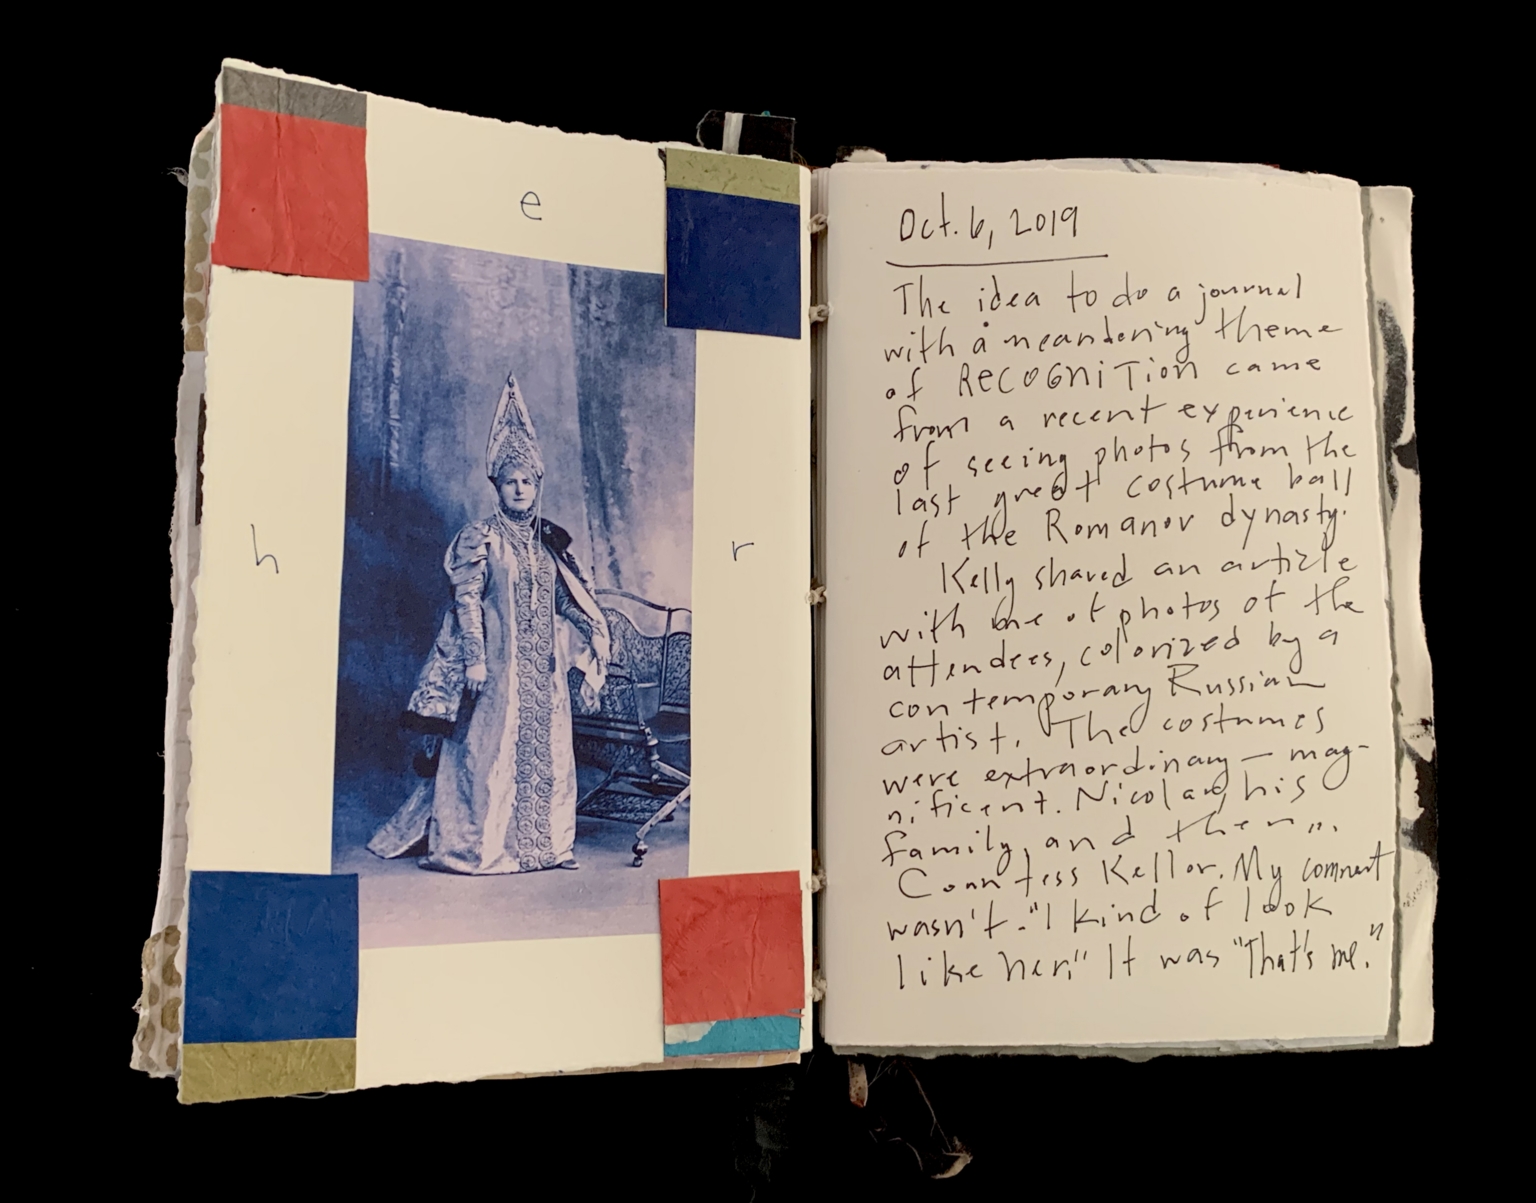 e
h r
Oct. 6, 2019
The idea to do a journal
with a meandering theme
of RECOGNITION came
from a recent experience
of seeing photos from the
last great costume ball
of the Romanov dynasty.
Kelly shared an article
with one of photos of the
attendees, colorized by a
contemporary Russian
artist. The costumes
were extraordinary — mag-
nificent. Nicolas, his
family, and then...
Countess Keller. My comment
wasn't - "I kind of look
like her." It was "That's me."